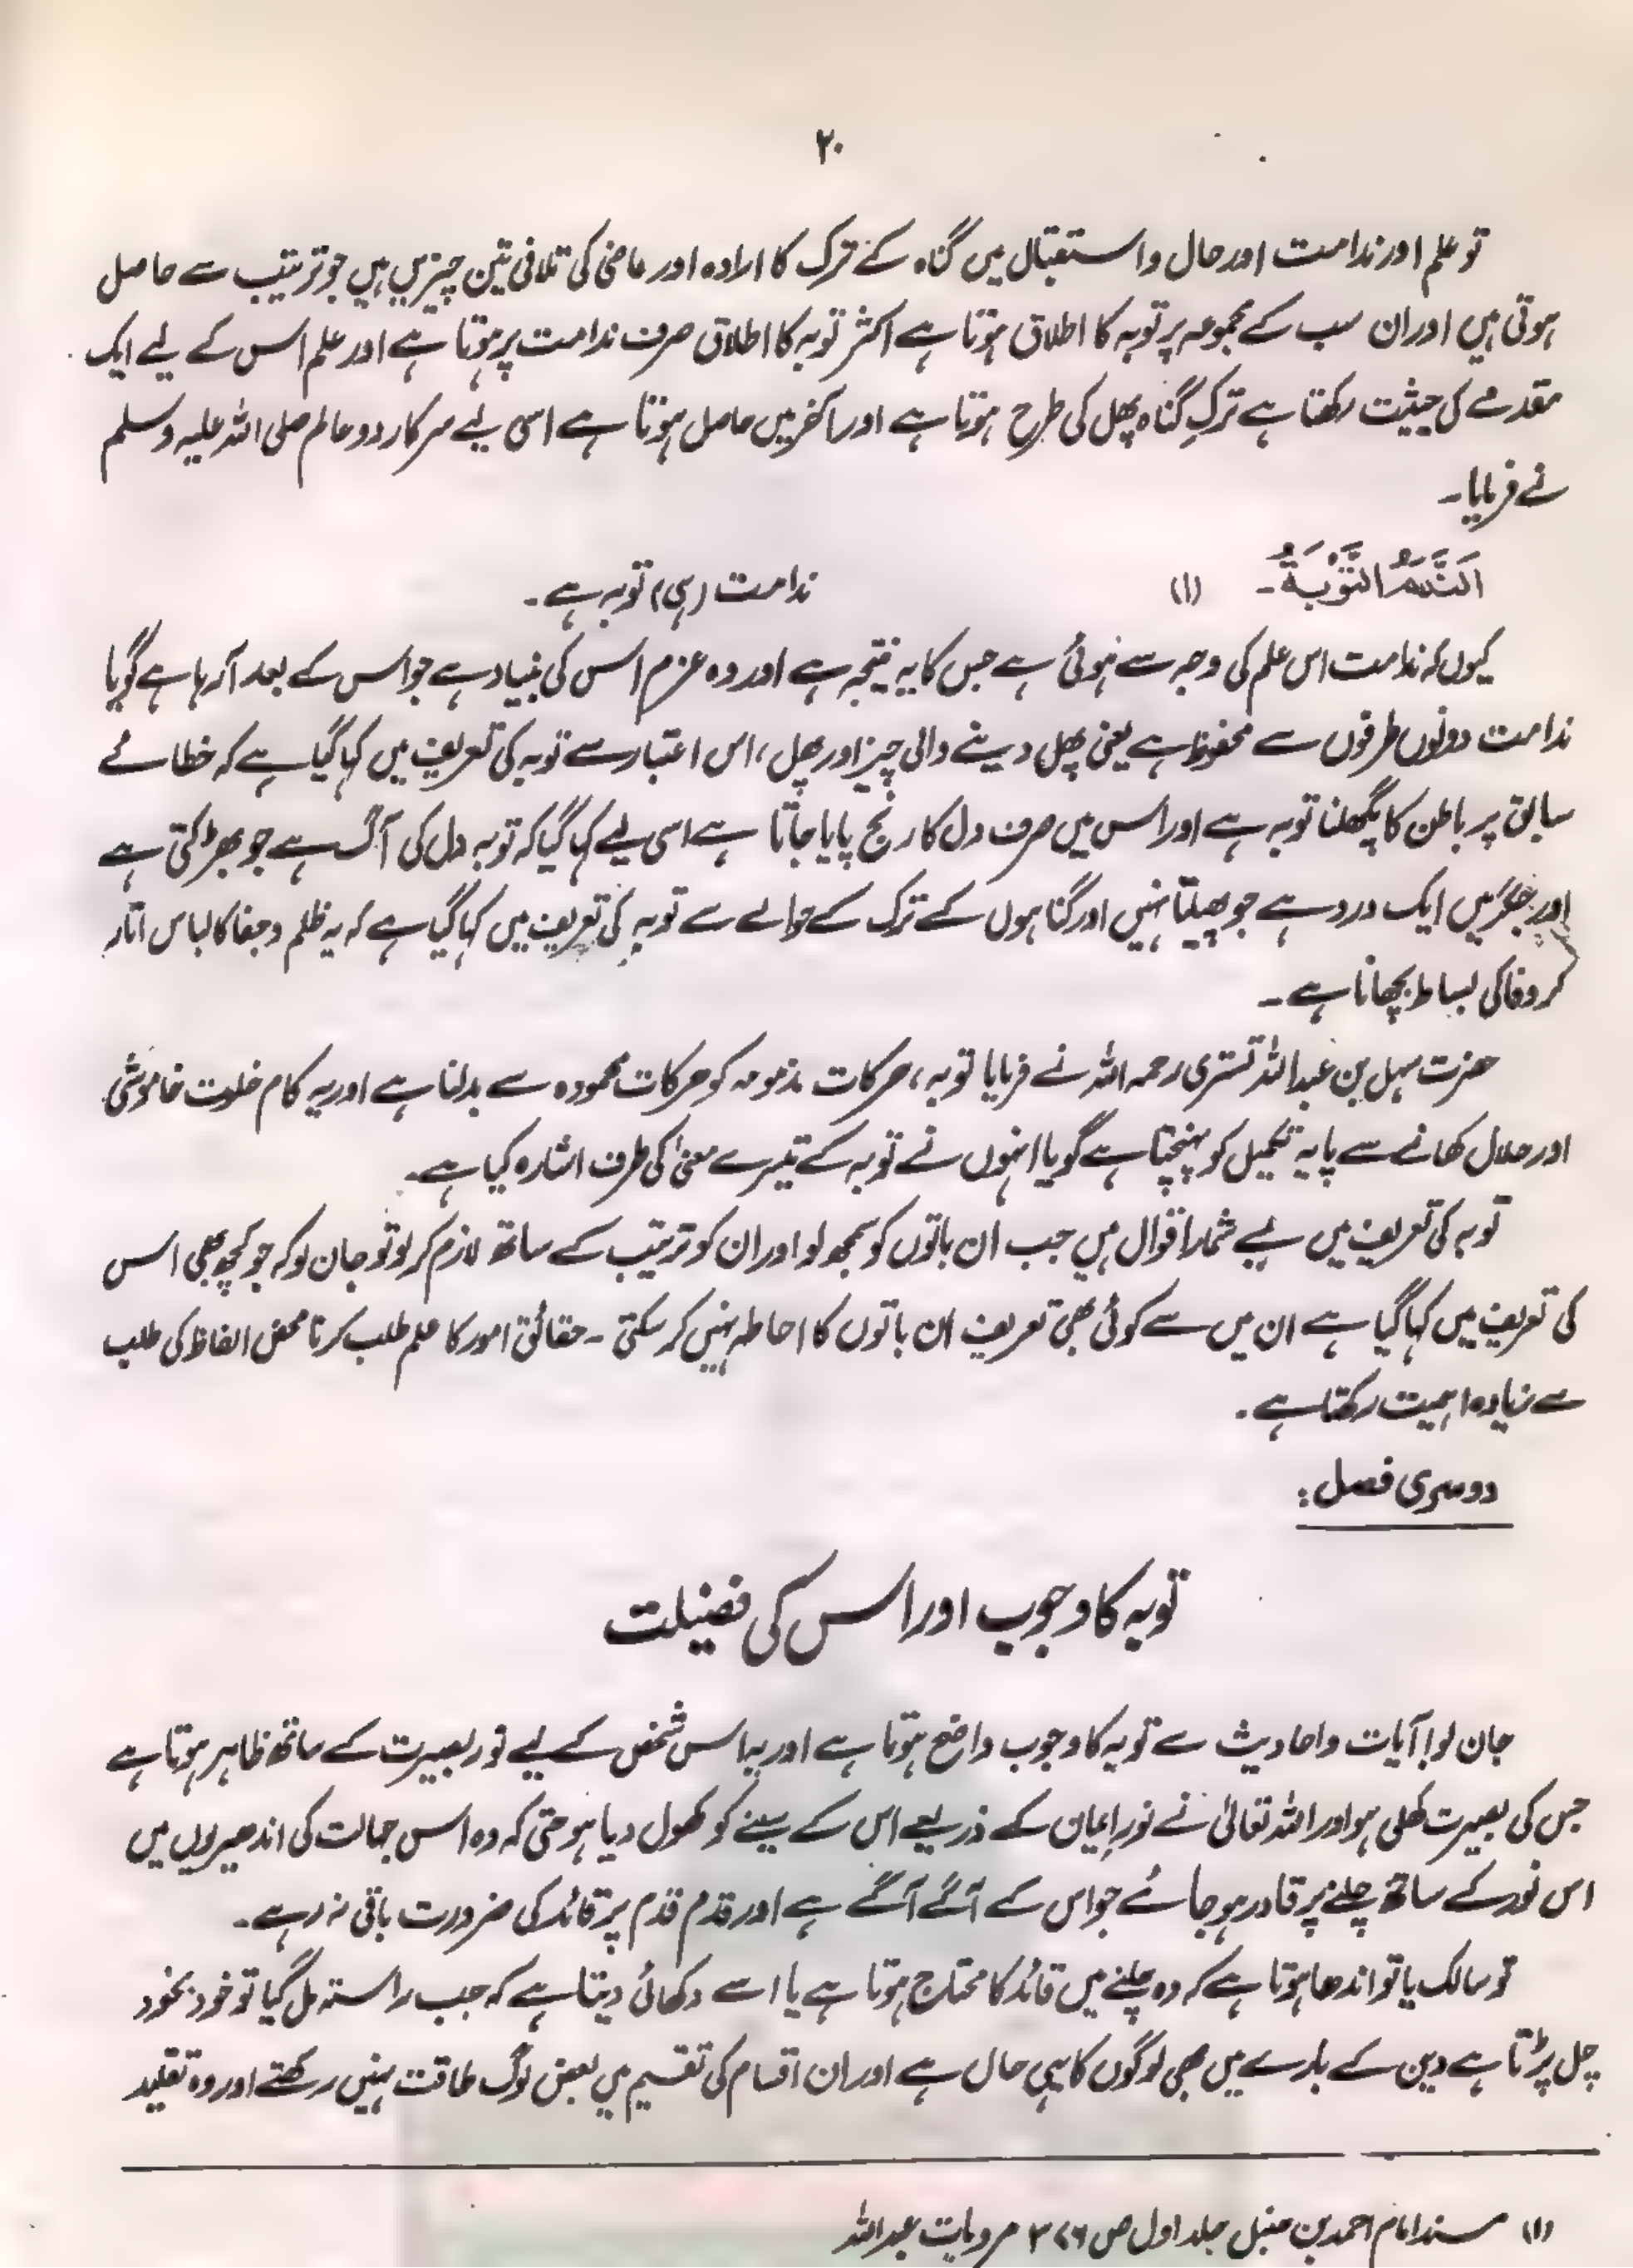 ۲۰
تو علم اور ندامت اور حال واستقبال میں گناہ کے ترک کا ارادہ اور ماضی کی تلافی تین چیزیں ہیں جو ترتیب سے حاصل
ہوتی ہیں اور ان سب کے مجموعہ پر توبہ کا اطلاق ہوتا ہے اکثر توبہ کا اطلاق صرف ندامت پر ہوتا ہے اور علم اس کے لیے ایک
مقدمے کی حیثیت رکھتا ہے ترکِ گناہ پھل کی طرح ہوتا ہے اور آخر میں حاصل ہوتا ہے اسی لیے سرکار دو عالم صلی اللہ علیہ وسلم
نے فرمایا۔
اَلنَّدَمُ التَّوْبَةُ۔ (۱) ندامت (ہی) توبہ ہے۔
کیوں کہ ندامت اس علم کی وجہ سے ہوئی ہے جس کا یہ نتیجہ ہے اور وہ عزم اس کی بنیاد ہے جو اس کے بعد آ رہا ہے گویا
ندامت دونوں طرفوں سے محفوظ ہے یعنی پھل دینے والی چیز اور پھل، اس اعتبار سے توبہ کی تعریف میں کہا گیا ہے کہ خطائے
سابق پر باطن کا پگھلنا توبہ ہے اور اس میں صرف دل کا رنج پایا جاتا ہے اسی لیے کہا گیا کہ توبہ دل کی آگ ہے جو بھڑکتی ہے
اور جگر میں ایک درد ہے جو پھیلتا نہیں اور گناہوں کے ترک کے حوالے سے توبہ کی تعریف میں کہا گیا ہے کہ یہ ظلم وجفا کا لباس اتار
کر وفا کی بساط بچھانا ہے۔
حضرت سہل بن عبداللہ تستری رحمہ اللہ نے فرمایا توبہ، حرکات مذمومہ کو حرکات محمودہ سے بدلنا ہے اور یہ کام خلوت خاموشی
اور حلال کھانے سے پایۂ تکمیل کو پہنچتا ہے گویا انہوں نے توبہ کے تیسرے معنیٰ کی طرف اشارہ کیا ہے۔
توبہ کی تعریف میں بے شمار اقوال ہیں جب ان باتوں کو سمجھ لو اور ان کو ترتیب کے ساتھ لازم کر لو تو جان لو کہ جو کچھ بھی اس
کی تعریف میں کہا گیا ہے ان میں سے کوئی بھی تعریف ان باتوں کا احاطہ نہیں کر سکتی ۔ حقائق امور کا علم طلب کرنا محض الفاظ کی طلب
سے زیادہ اہمیت رکھتا ہے۔
دوسری فصل:
توبہ کا وجوب اور اس کی فضیلت
جان لو! آیات واحادیث سے توبہ کا وجوب واضح ہوتا ہے اور یہ اس شخص کے لیے نور بصیرت کے ساتھ ظاہر ہوتا ہے
جس کی بصیرت کھلی ہو اور اللہ تعالیٰ نے نورِ ایمان کے ذریعے اس کے سینے کو کھول دیا ہو حتیٰ کہ وہ اس جہالت کی اندھیریوں میں
اس نور کے ساتھ چلنے پر قادر ہو جائے جو اس کے آگے آگے ہے اور قدم قدم پر قائد کی ضرورت باقی نہ رہے۔
تو سالک یا تو اندھا ہوتا ہے کہ وہ چلنے میں قائد کا محتاج ہوتا ہے یا اسے دکھائی دیتا ہے کہ جب راستہ مل گیا تو خود بخود
چل پڑتا ہے دین کے بارے میں بھی لوگوں کا یہی حال ہے اور ان اقسام کی تقسیم میں بعض لوگ طاقت نہیں رکھتے اور وہ تقلید
(۱) مسند امام احمد بن حنبل جلد اول ص ۳۷۶ مرویات عبداللہ